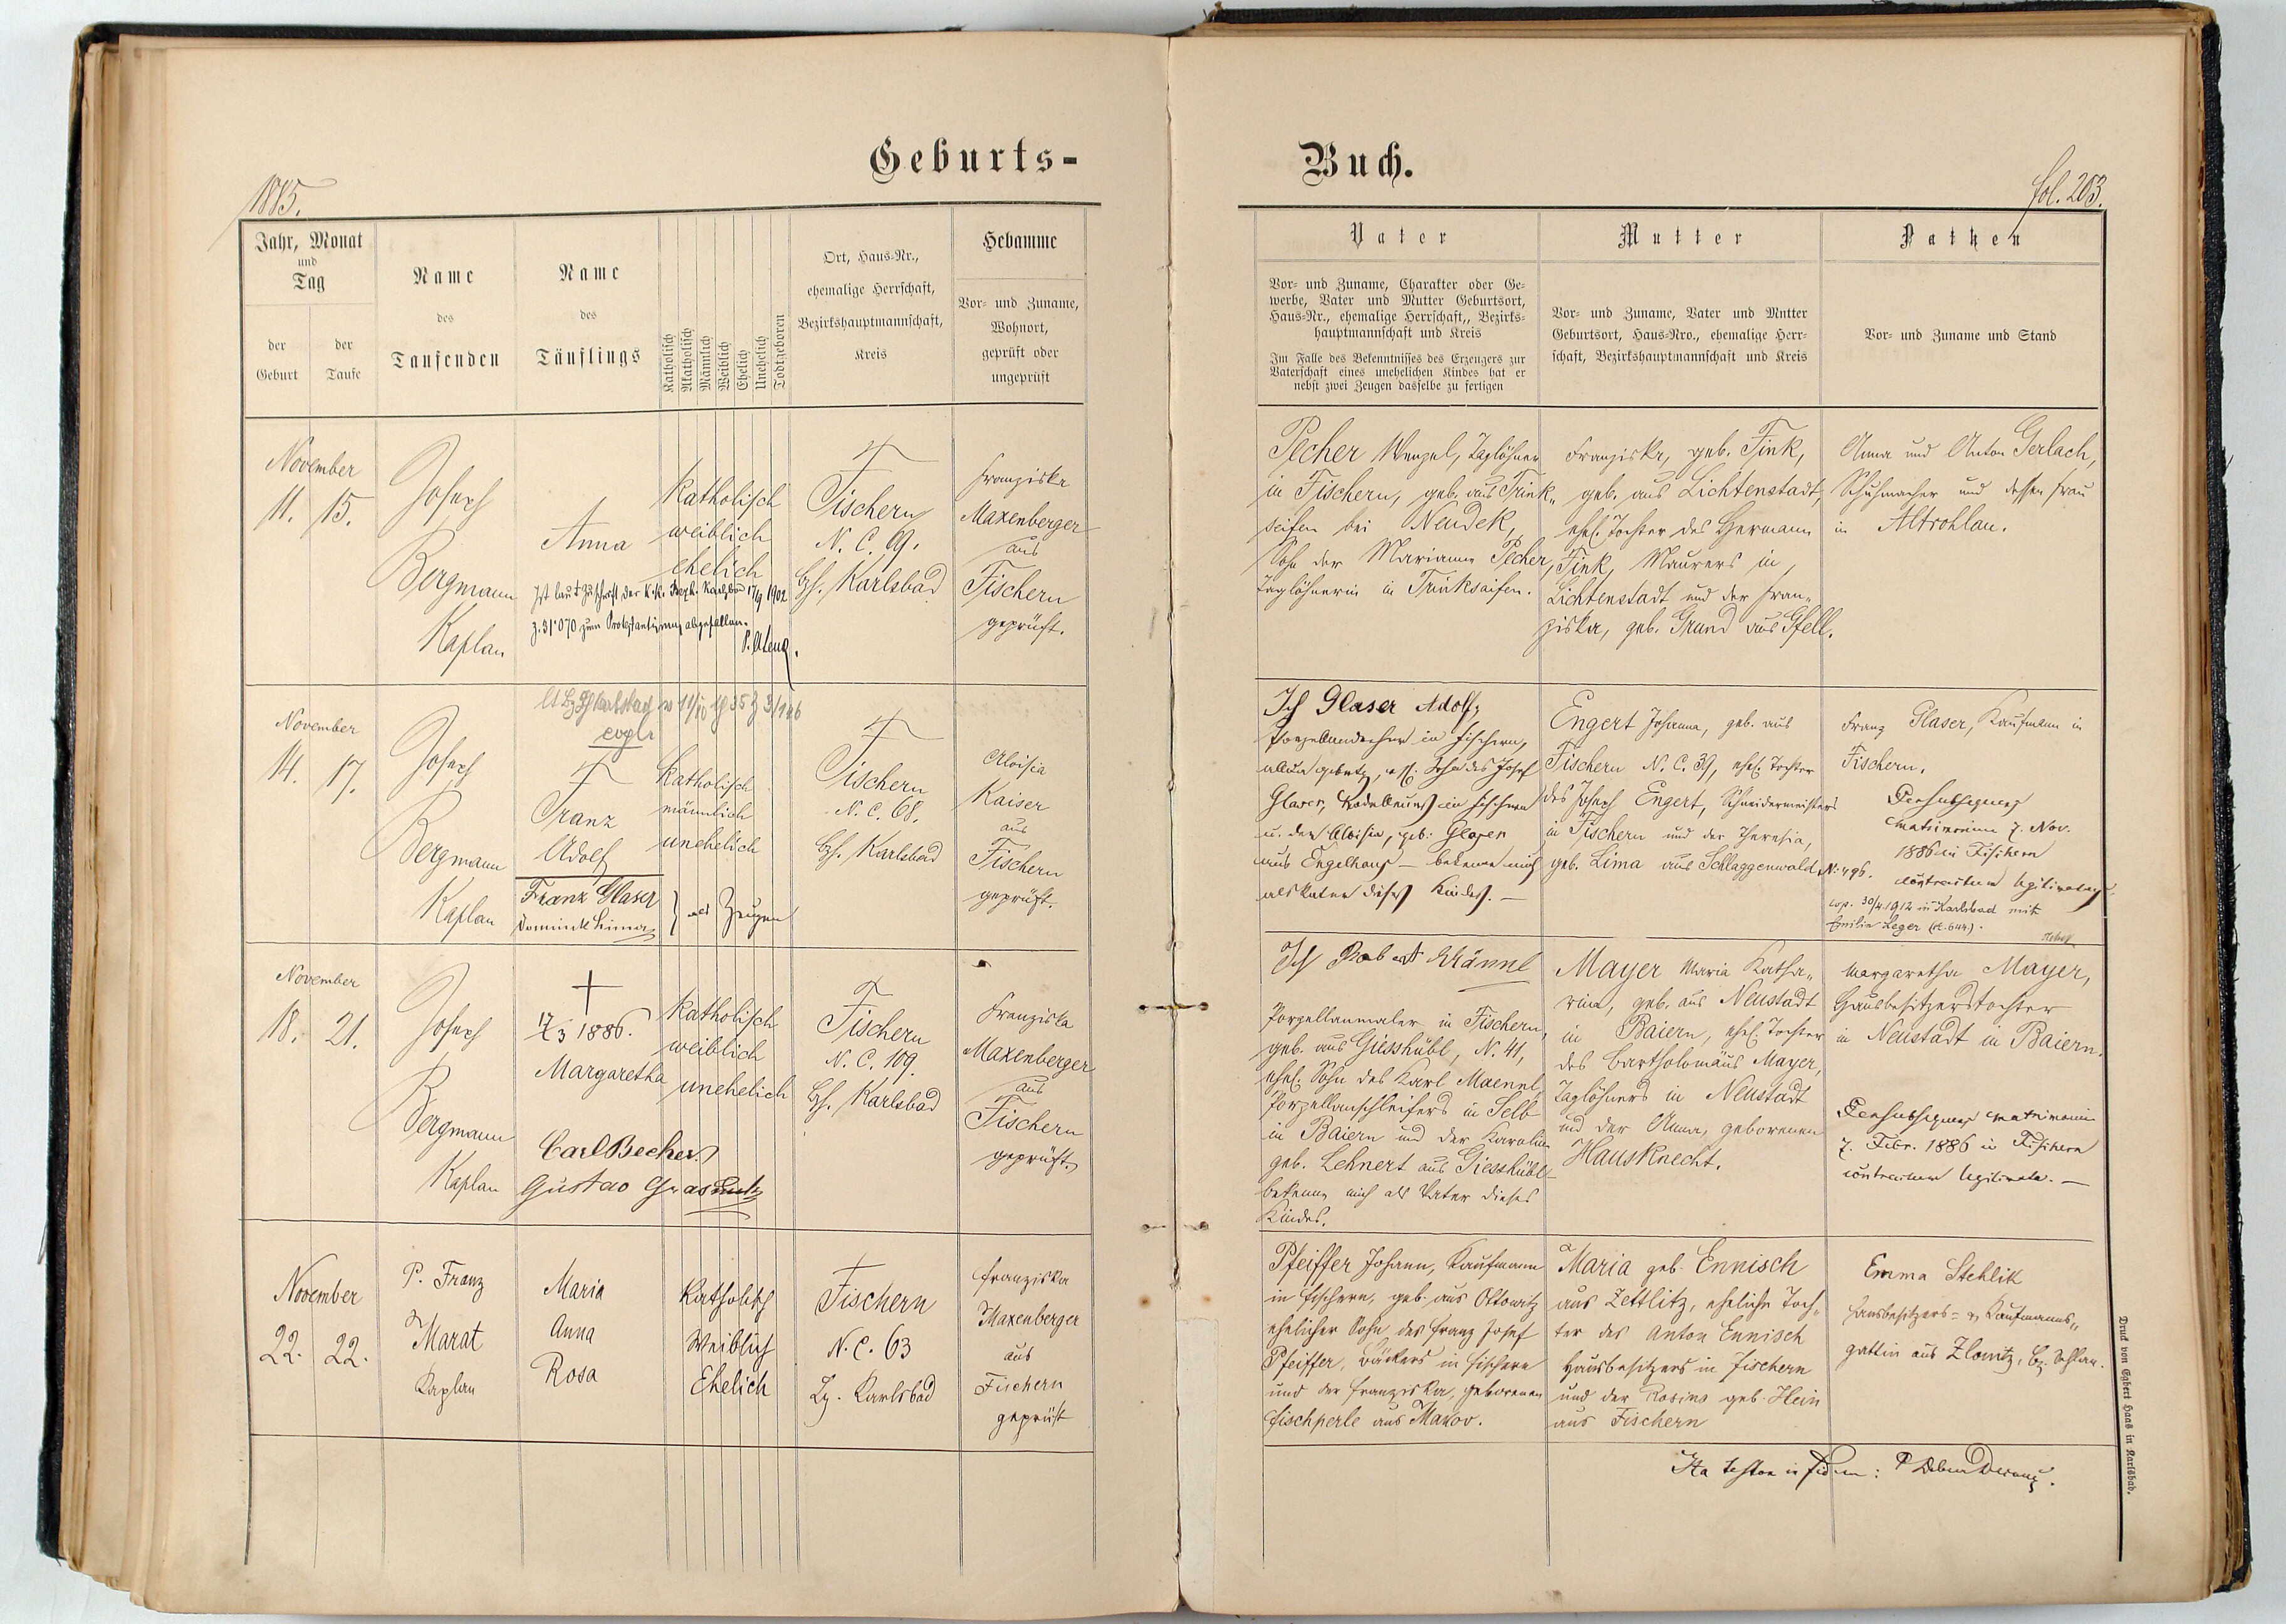 Geburts-
1885.
Jahr, Monat
und
Tag
der
Geburt
der
Taufe
Name
des
Taufenden
Name
des
Täuflings
Katholisch
Akatholisch
Männlich
Weiblich
Ehelich
Unehelich
Todtgeboren
Ort, Haus-Nr.,
ehemalige Herrschaft,
Bezirkshauptmannschaft,
Kreis
Hebamme
Vor- und Zuname,
Wohnort,
geprüft oder
ungeprüft
November
11. 15.
Josef
Bergmann
Kaplan
Anna
Ist laut Zuschrift der k. k. Bezk. Karlsbad 17/9 1902
Z. 31070 zum Protestantismus abgefallen.
katholisch
weiblich
ehelich
Fischern
N. C. 69.
Bh. Karlsbad
Franziska
Maxenberger
aus
Fischern
geprüft.
November
14. 17.
Josef
Bergmann
Kaplan
Franz
Adolf
Franz Glaser
Dominik Lima
als Zeugen
katholisch
männlich
unehelich
Fischern
N. C. 68.
Bh. Karlsbad
Aloisia
Kaiser
aus
Fischern
geprüft.
November
18. 21.
Josef
Bergmann
Kaplan
17/3 1886.
Margaretha
Carl Becher
katholisch
weiblich
unehelich
Fischern
N. C. 109.
Bh. Karlsbad
Franziska
Maxenberger
aus
Fischern
geprüft.
November
22. 22.
P. Franz
Marat
Kaplan
Maria
Anna
Rosa
Katholisch
Weiblich
Ehelich
Fischern
N. C. 63
Bz. Karlsbad
Franziska
Maxenberger
aus
Fischern
geprüft
Buch.
fol. 203.
Vater
Vor- und Zuname, Charakter oder Ge-
werbe, Vater und Mutter Geburtsort,
Haus-Nr., ehemalige Herrschaft,, Bezirks-
hauptmannschaft und Kreis
Im Falle des Bekenntnisses des Erzeugers zur
Vaterschaft eines unehelichen Kindes hat er
nebst zwei Zeugen dasselbe zu fertigen
Mutter
Vor- und Zuname, Vater und Mutter
Geburtsort, Haus-Nro., ehemalige Herr-
schaft, Bezirkshauptmannschaft und Kreis
Pathen
Vor- und Zuname und Stand
Pecher Wenzel, Taglöhner
in Fischern, geb. aus Trink-
seifen bei Neudek,
Sohn der Marianna Pecher,
Taglöhnerin in Trinksaifen.
Franziska, geb. Fink,
geb. aus Lichtenstadt,
ehel. Tochter des Hermann
Fink, Maurers in
Lichtenstadt und der Fran-
ziska, geb. Grund aus Gfell.
Anna und Anton Gerlach,
Schuhmacher und dessen Frau
in Altrohlau.
Ich Glaser Adolf,
Porzellandreher in Fischern,
allda gebürtig, ehl. Sohn des Josef
Glaser, Modelleurs in Fischern
u. der Aloisia, geb. Glaser
aus Engelhaus – bekenne mich
als Vater dieses Kindes. –
Engert Johanna, geb. aus
Fischern N. C. 39, ehel. Tochter
des Joseph Engert, Schneidermeisters
in Fischern und der Theresia,
geb. Lima aus Schlaggenwald N. 496.
Franz Glaser, Kaufmann in
Fischern.
Per subsequens
matrimonium 7. Nov.
1886 in Fischern
contractum legitimatus
cop. 30/4 1912 in Karlsbad mit
Emilie Leger
Ich Robert Männl
Porzellanmaler in Fischern,
geb. aus Giesshübl, N. 41,
ehel. Sohn des Karl Maennl
Porzellanschleifers in Selb
in Baiern und der Karolin
geb. Lehnert aus Giesshübl
bekenne mich als Vater dieses
Kindes.
Mayer Maria Katha-
rina, geb. aus Neustadt
in Baiern, ehel. Tochter
des Bartholomäus Mayer,
Taglöhners in Neustadt
und der Anna, geborenen
Hausknecht.
Margaretha Mayer,
Hausbesitzerstochter
in Neustadt in Baiern.
Per subsequens matrimonium
7. Febr. 1886 in Fischern
contractum legitimata. –
Pfeiffer Johann, Kaufmann
in Fischern, geb. aus Ottowitz
ehelicher Sohn des Franz Josef
Pfeiffer, Bäckers in Fischern
und der Franziska, geborenen
Fischperle aus Makov.
Maria geb. Ennisch
aus Zettlitz, eheliche Toch-
ter des Anton Ennisch
Hausbesitzers in Fischern
und der Rosina geb. Hein
aus Fischern
Emma Stehlik
Hausbesitzers- u. Kaufmanns-
gattin aus Zlonitz, Bz. Schlan.
Ita testor in fidem:
Druck von Egbert Haas in Karlsbad.